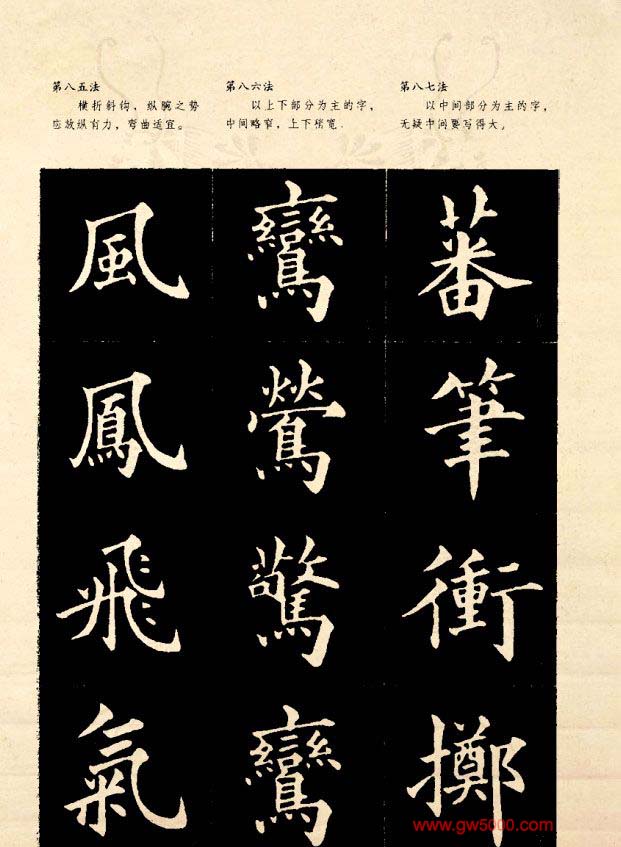 第八五法
横折斜钩，纵腕之势
应放纵有力，弯曲适宜。
第八六法
以上下部分为主的字，
中间略窄，上下稍宽。
第八七法
以中间部分为主的字，
无疑中间要写得大。
風 鸞 蕃
鳳 鶯 筆
飛 驚 衝
氣 鸞 擲
www.gw5000.com